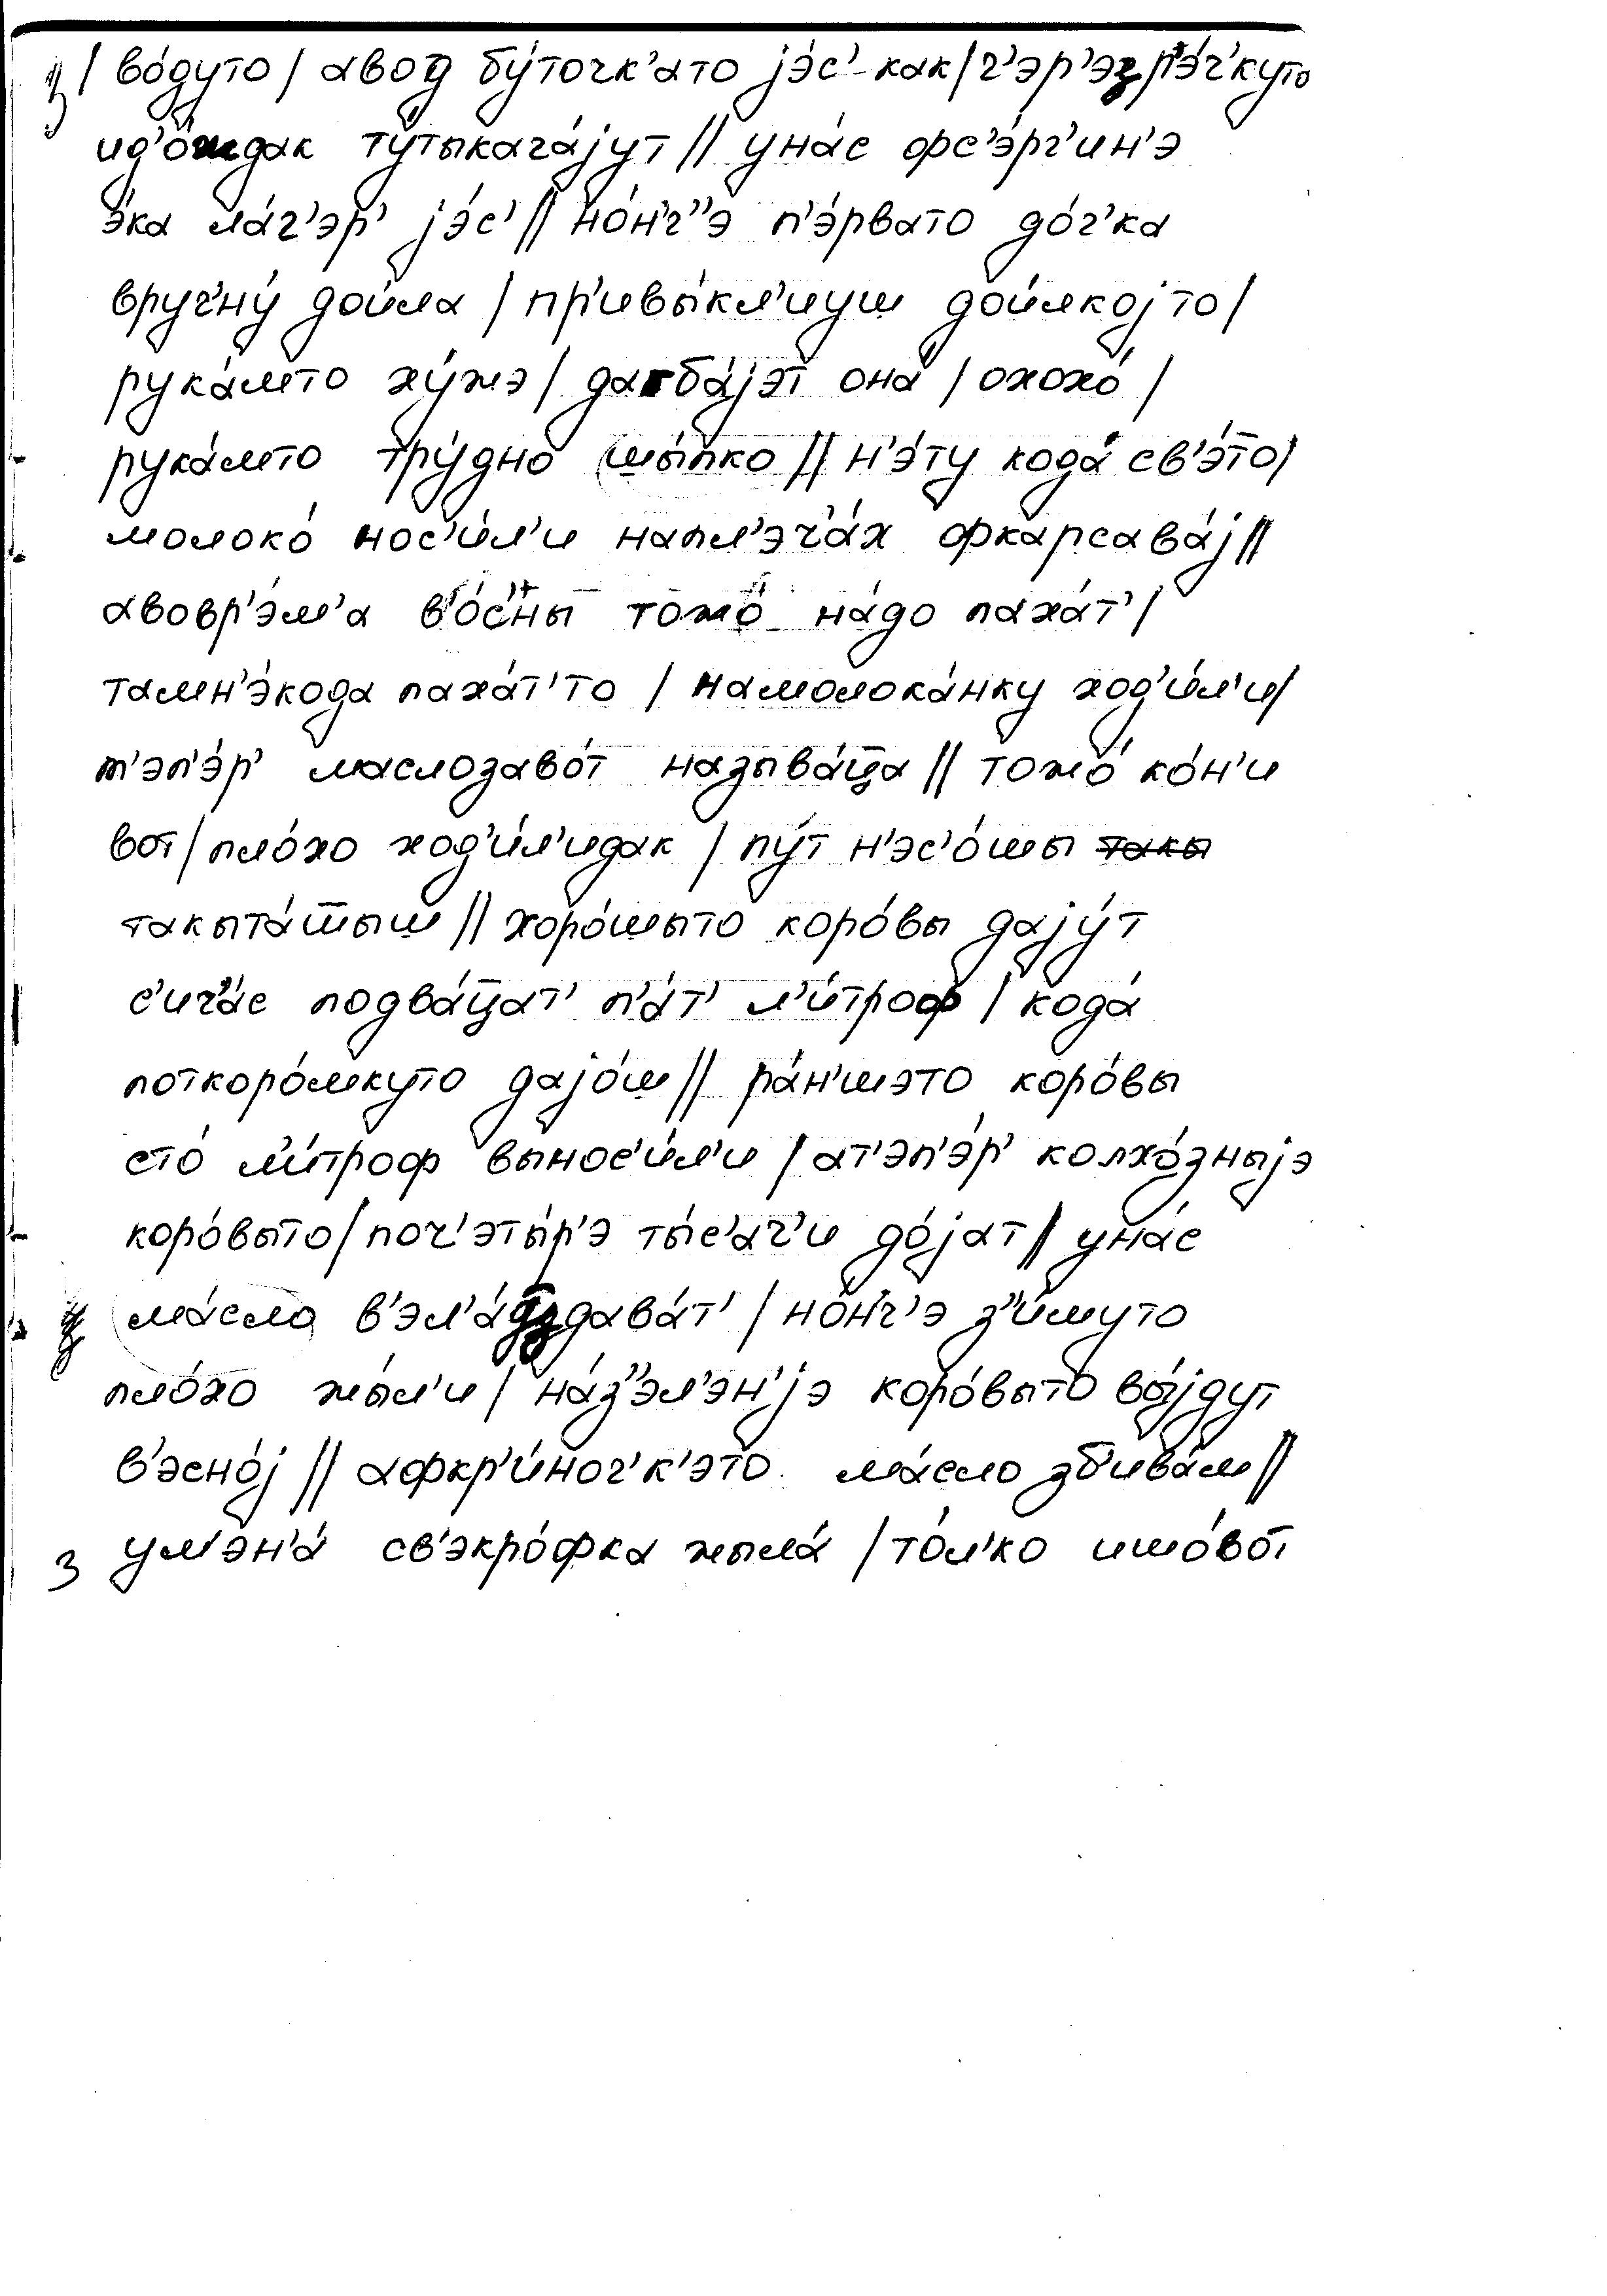 / во́дуто / авод бу́точк'ато jэ́с' как / ч'эр'эз р'э́ч'куто
ид'о́шдак ту́тыкача́jут // уна́с офс'э́рг'ин'э
э́ка ла́г'эр' jэ́с' // но́н'ч''э п'э́рвато до́ч'ка
вруч'ну́ дои́ла / пр'ивы́кл'иуш дои́лкоj то /
рука́мто ху́жэ / да ба́jэт она́ / охохо́ /
рука́мто тру́дно шы́пко // н'э́ту кода́ св'э́то /
молоко́ нос'и́л'и напл'эч'а́х фкарсава́j //
авовр'э́м'а в'о́сны тожо́ на́до паха́т' /
тамн'э́кода паха́т'то / намолока́нку ход'и́л'и /
т'эп'э́р' маслозаво́т называ́ц̄а // тожо́ ко́н'и
вот / пло́хо ход'и́л'идак / пу́т н'эс'о́шы ~~такы~~
такыта́шшыш // хоро́шыто коро́вы даjу́т
с'ич'а́с подва́ц̄ат' п'а́т' л'и́троф / кода́
поткоро́мкуто даjо́ш // ра́н'шэто коро́вы
сто́ л'и́троф вынос'и́л'и / ат'эп'э́р' колхо́зныjэ
коро́выто / поч'эты́р'э ты́с'ач'и до́jат // уна́с
ма́сло в'эл'а́ здава́т' / но́н'ч'э з'и́муто
пло́хо жы́л'и / на́з''эл'эн'jэ коро́выто вы́jдут
в'эсно́j // афкр'и́ноч'к'это ма́сло зб'ива́м //
ум'эн'а́ св'экро́фка жыла́ / то́л'ко ишо́во́т